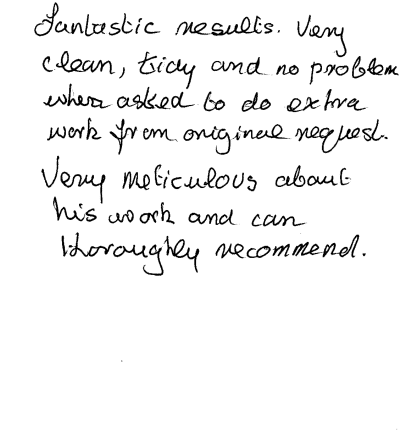 Fantastic results. Very
clean, tidy and no problem
when asked to do extra
work from original request.
Very meticulous about
his work and can
thoroughly recommend.